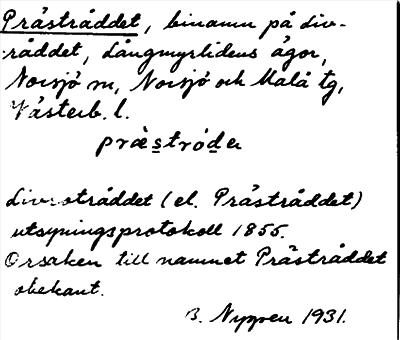 Prästråddet, binamn på Liv-
råddet, Långmyrlidens ägor,
Norsjö sn, Norsjö och Malå tg,
Västerb. l.
præstródə
Livsotråddet (el. Prästråddet)
utsyningsprotokoll 1855.
Orsaken till namnet Prästråddet
obekant.
B. Nygren 1931.